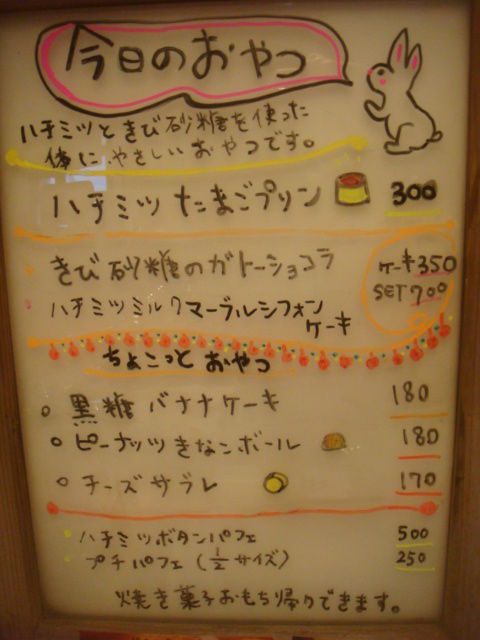 今日のおやつ
ハチミツときび砂糖を使った
体にやさしいおやつです。
ハチミツたまごプリン 300
きび砂糖のガトーショコラ
ハチミツミルクマーブルシフォン
ケーキ
ケーキ350
SET700
ちょこっとおやつ
○ 黒糖バナナケーキ 180
○ ピーナッツきなこボール 180
○ チーズサブレ 170
ハチミツボタンパフェ 500
プチパフェ(1/2サイズ) 250
焼き菓子おもち帰りできます。